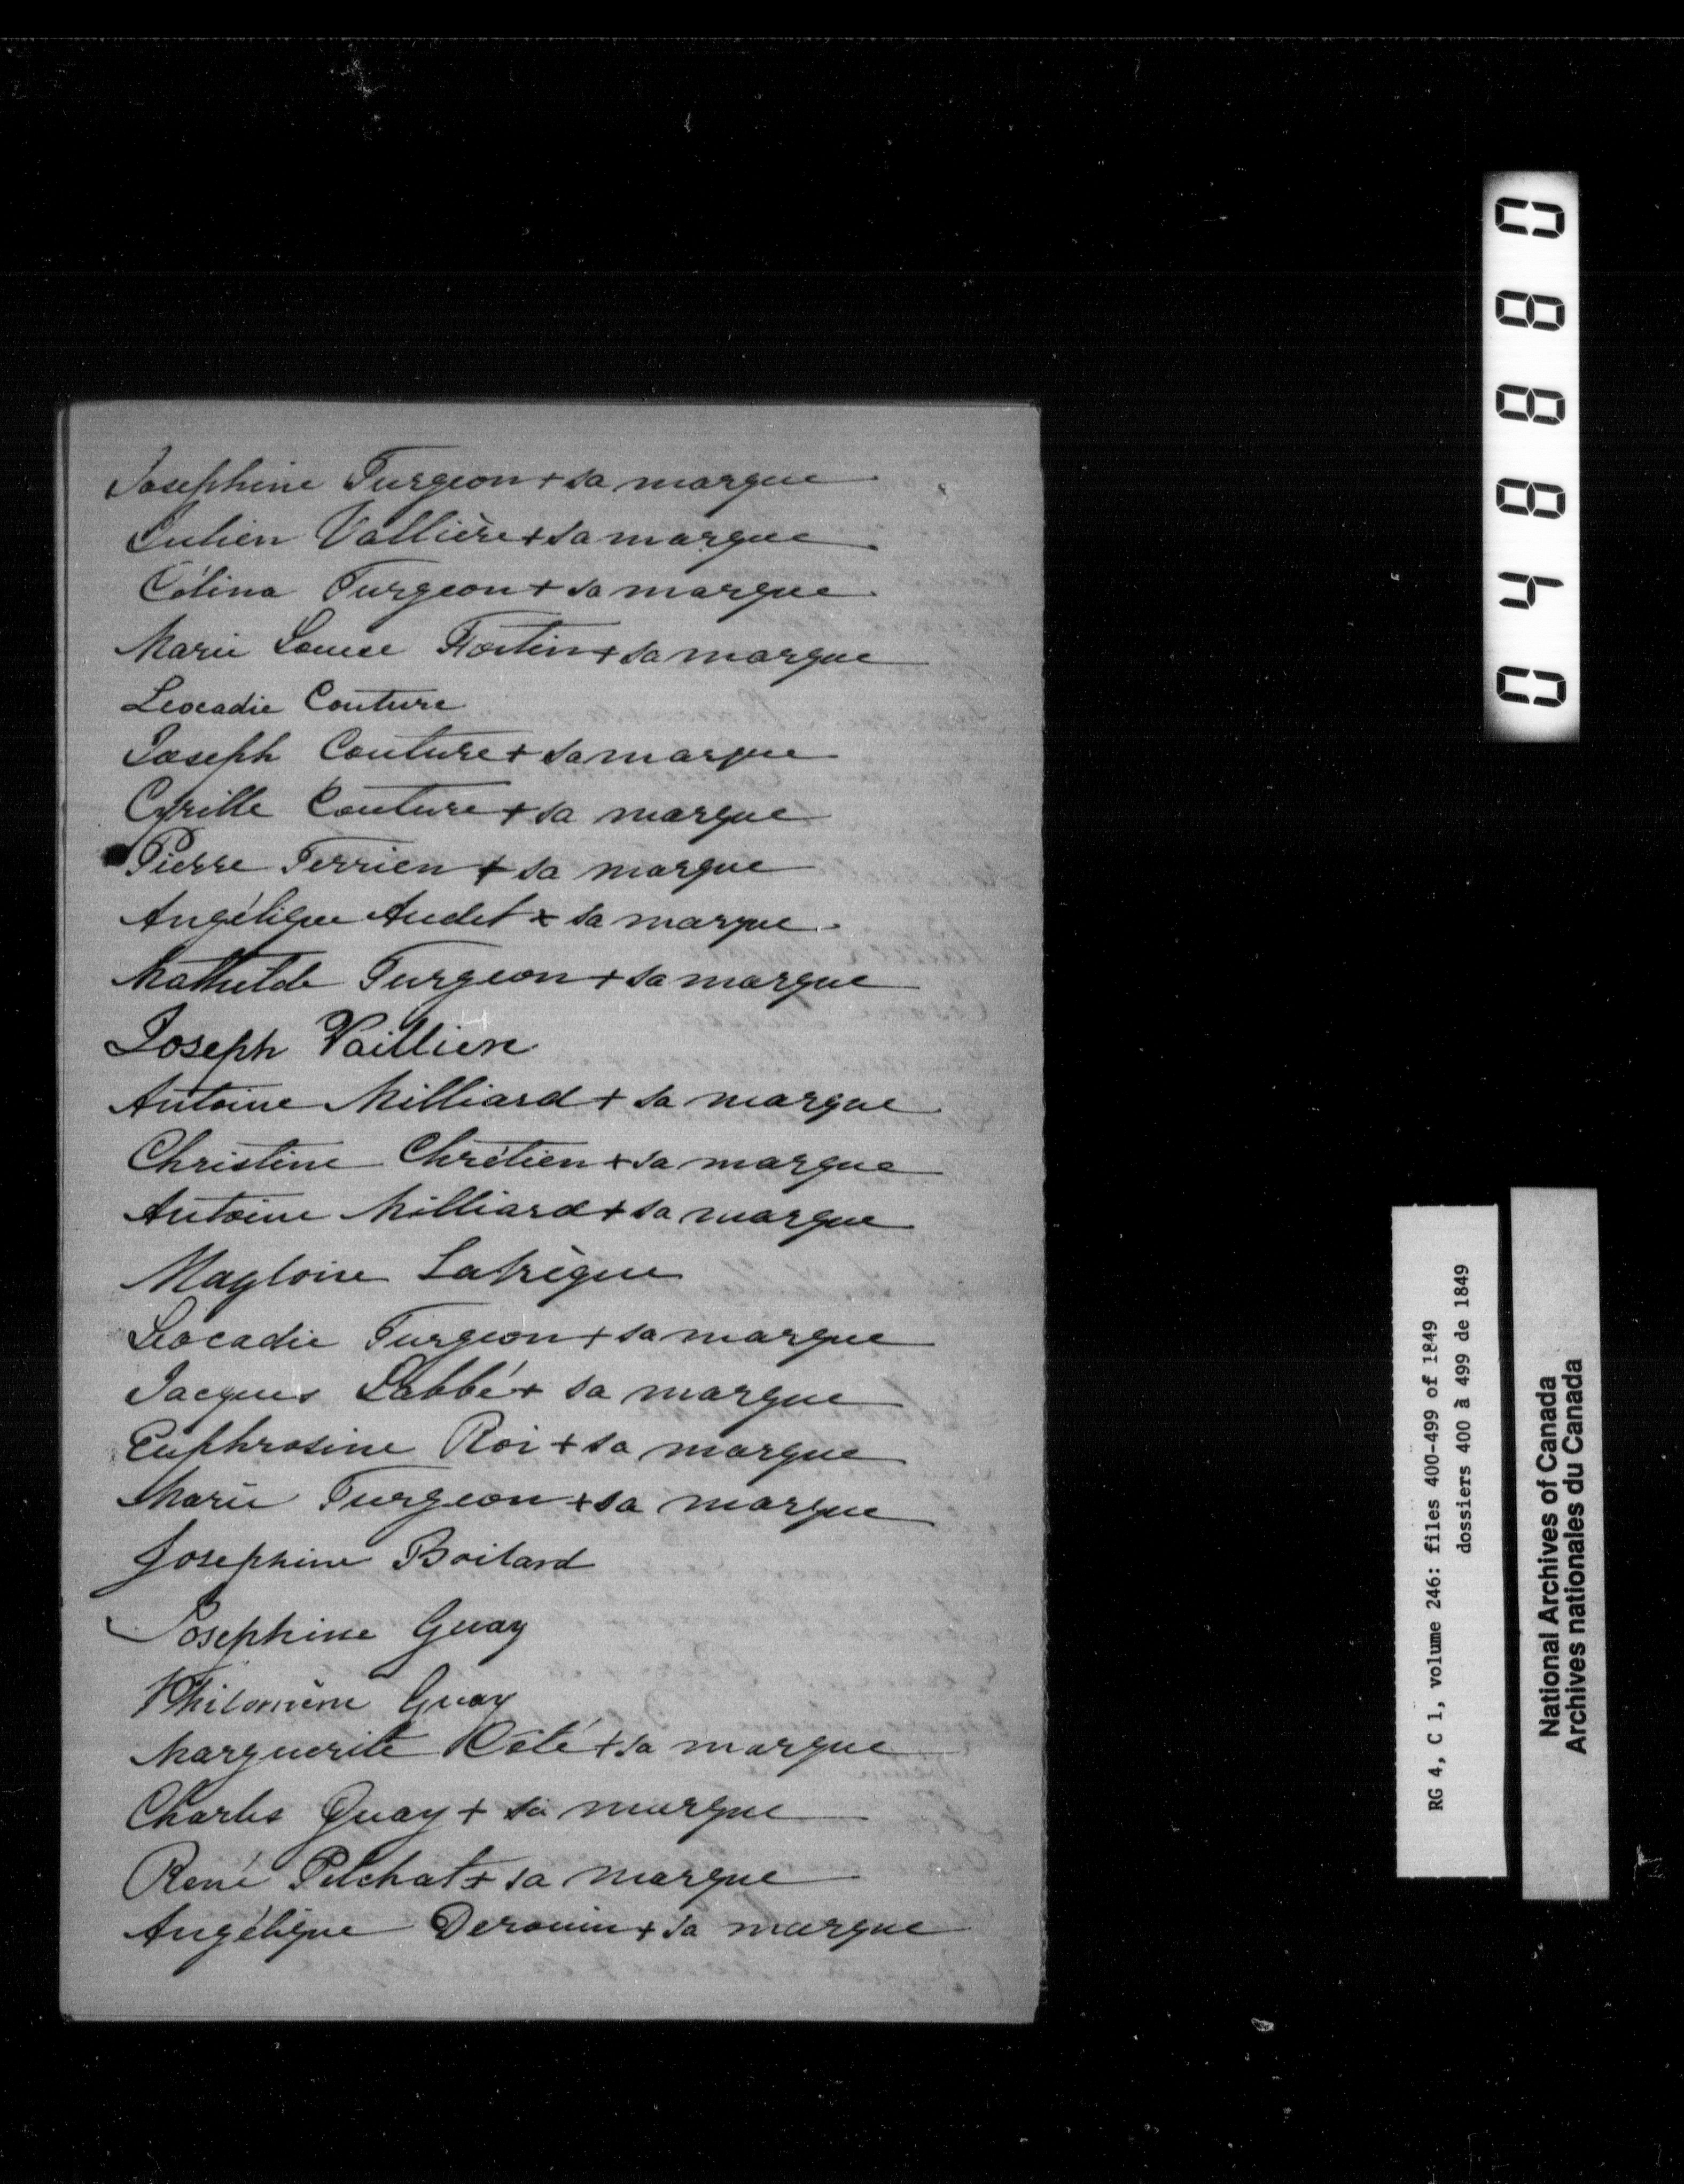 Josephine Turgeon + sa marque
Julien Vallière + sa marque
Célina Turgeon + sa marque
Marie Louise Fortin + sa marque
Leocadie Couture
Joseph Couture + sa marque
Cyrille Couture + sa marque
Pierre Terrien + sa marque
Angélique Audet x sa marque
Mathilde Turgeon + sa marque
Joseph Vailliere
Antoine Milliard + sa marque
Christine Chrétien + sa marque
Antoine Milliard + sa marque
Magloire
Leocadie Turgeon + sa marque
Jacques Labbé + sa marque
Euphrosine Roi + sa marque
Marie Turgeon + sa marque
Josephine Boilard
Josephine Guay
Philomène Guay
Marguerite Coté + sa marque
Charles Guay + sa marque
René Pelchat + sa marque
Angélique Derouin + sa marque
048880
RG 4, C 1, volume 246: files 400-499 of 1849
dossiers 400 à 499 de 1849
National Archives of Canada
Archives nationales du Canada